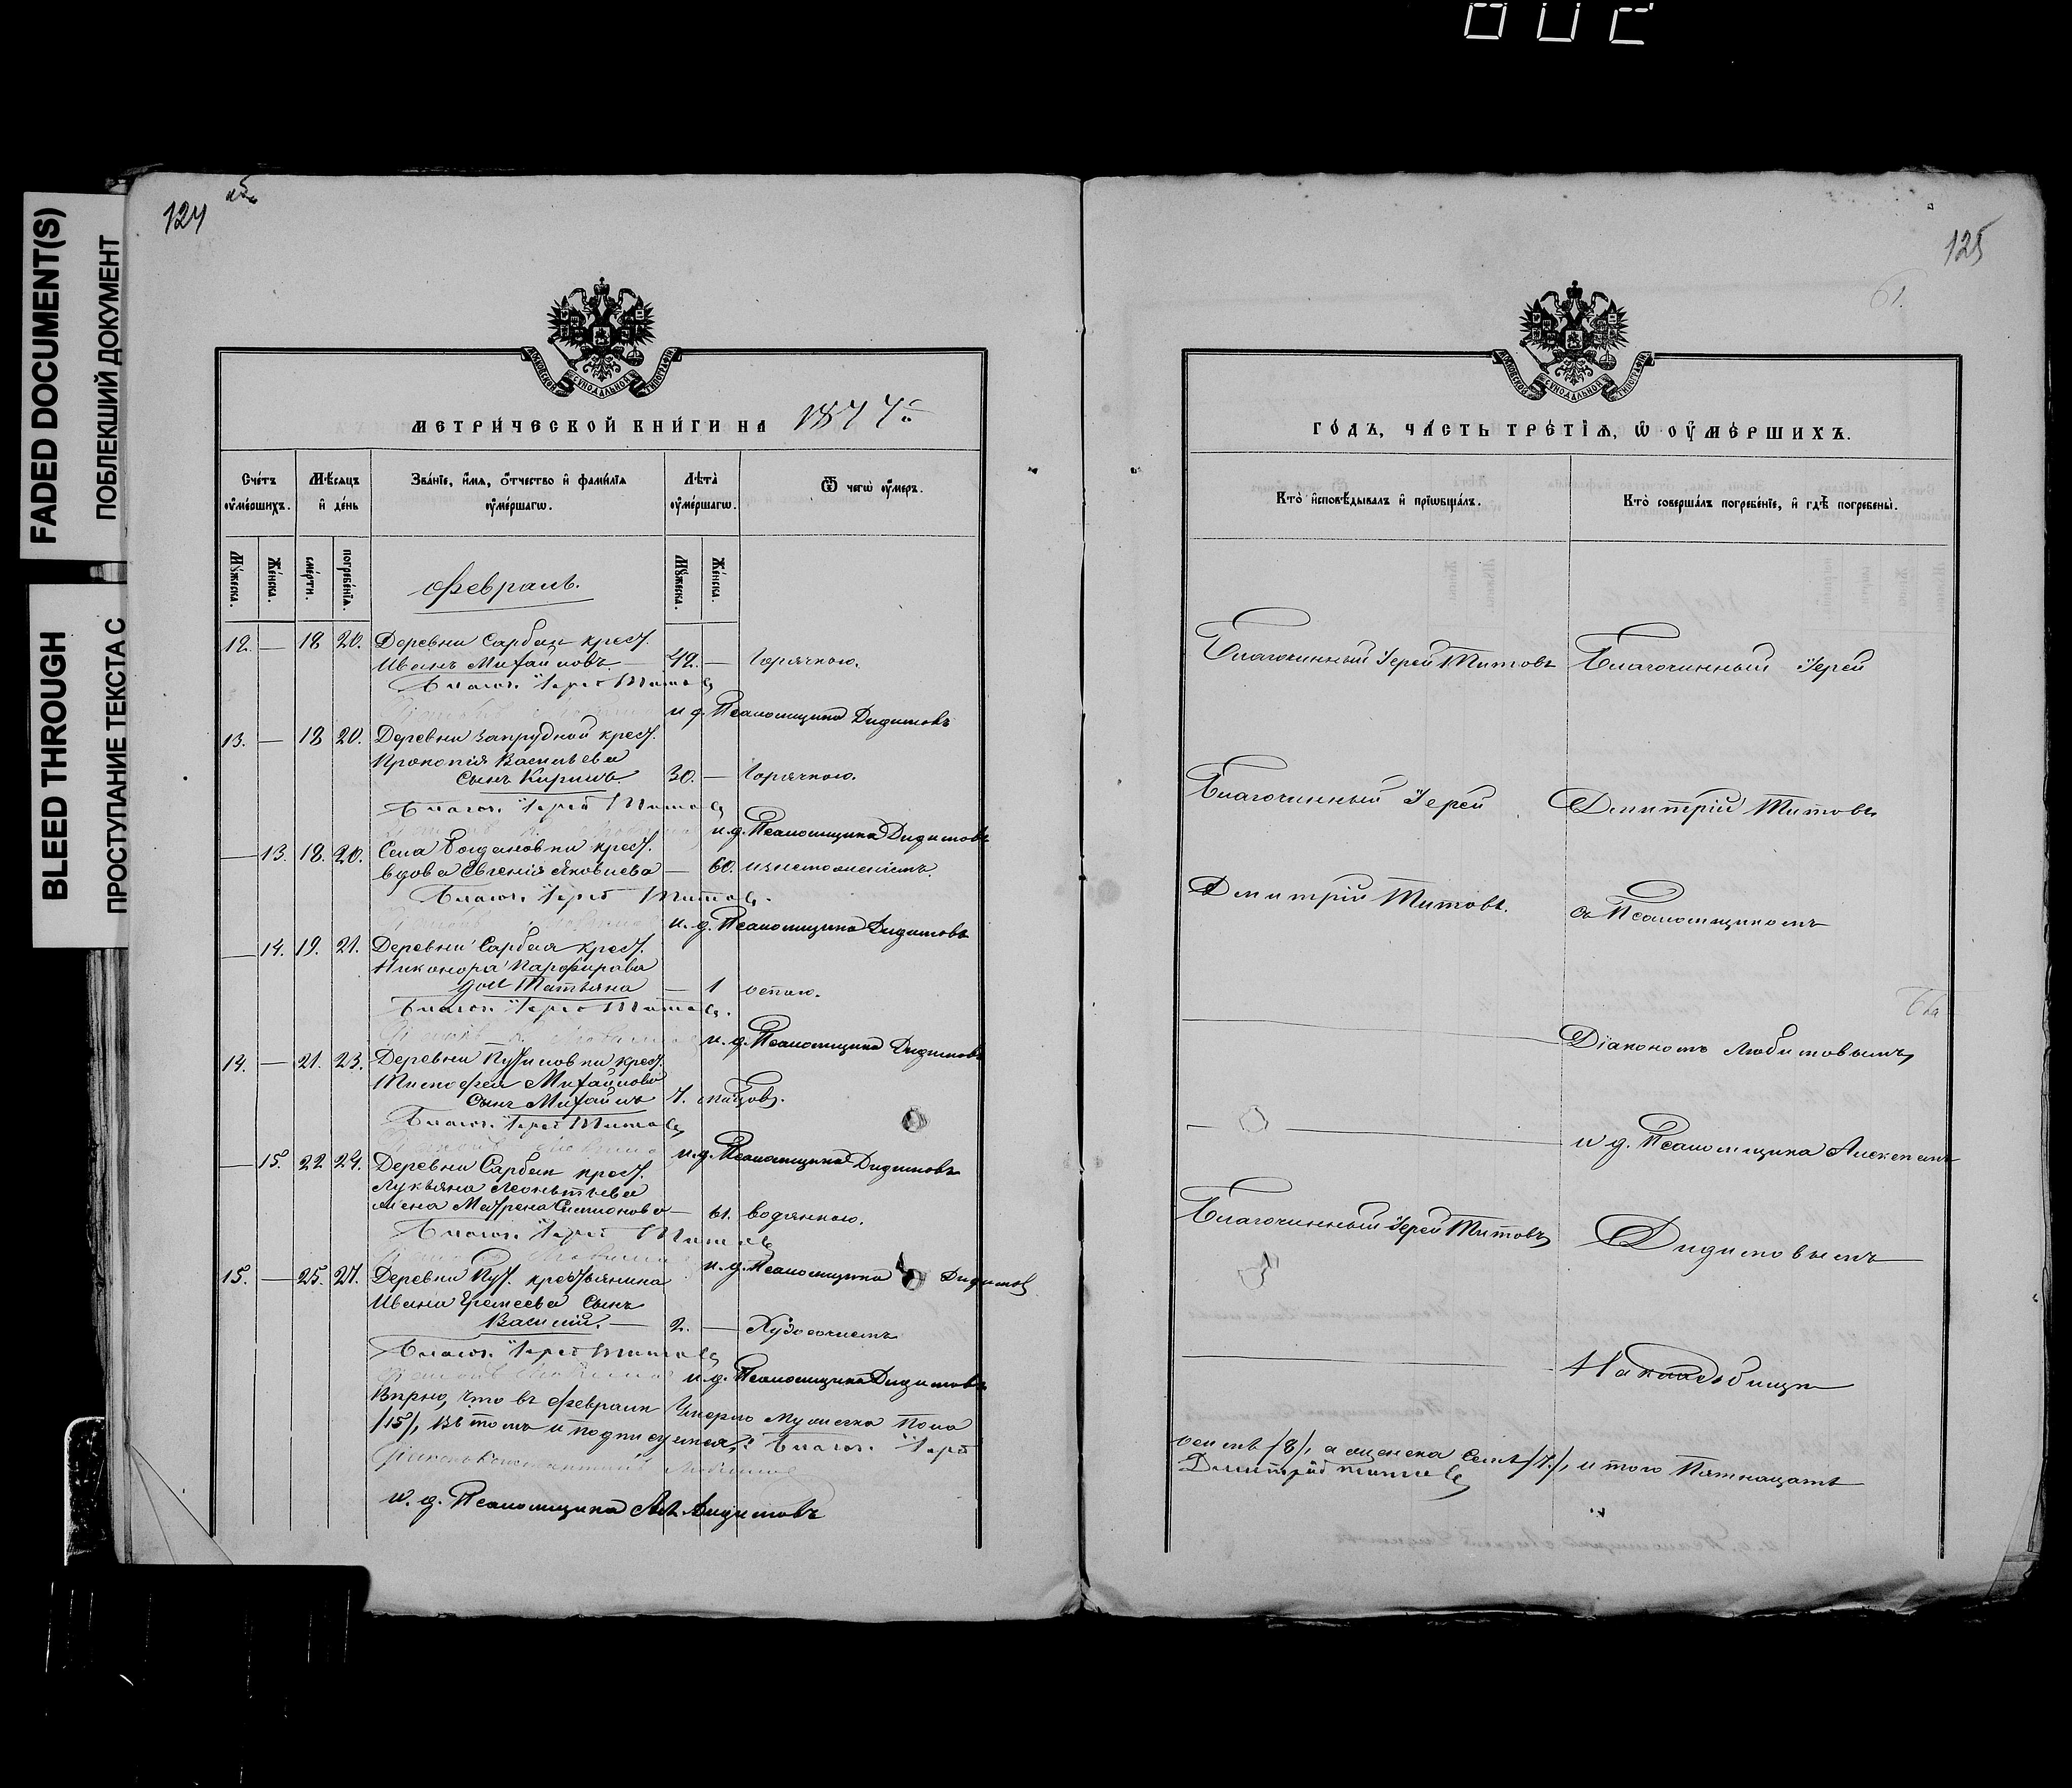 002
FADED DOCUMENT(S)
ПОБЛЕКШИЙ ДОКУМЕНТ
BLEED THROUGH
ПРОСТУПАНИЕ ТЕКСТА С
124
125
61.
МОСКОВСКОЙ СѴНОДАЛЬНОЙ ТИПОГРАФІИ
МЕТРИ́ЧЕСКОЙ КНИ́ГИ НА 1877й
Сче́тъ оу҆ме́ршихъ.
Мѣ́сѧцъ и҆ де́нь
Зва́нїе, и҆́мѧ, ѻ҆́тчество и҆ фами́лїѧ оу҆ме́ршагѡ.
Лѣ́та оу҆ме́ршагѡ.
Ѿ чегѡ̀ оу҆́меръ.
Мꙋ́жеска.
Же́нска.
сме́рти.
погребе́нїѧ.
Февраль.
Мꙋ́жеска.
Же́нска.
12. — 18 20. Деревни Сарбаи крест.
Иванъ Михайловъ. — 42. — Горячкою.
Благоч. Іерей Титовъ
и д. Псаломщика Дидимовъ
13. — 18 20. Деревни Запрудной крест.
Прокопія Васильева
сынъ Кирилъ. 30. — Горячкою.
Благоч. Іерей Титовъ
и. д. Псаломщика Дидимовъ
— 13. 18. 20. Села Богдановки крест.
вдова Евгенія Яковлева — 60.
Благоч. Іерей Титовъ.
и. д. Псаломщика Дидимовъ
— 14. 19. 21. Деревни Сарбая крест.
Никонора Парфирова
дочь Татьяна — 1 оспою.
Благоч. Іерей Титовъ.
и. д. Псаломщика Дидимовъ
14. — 21. 23. Деревни Путиловки крест.
Тимофея Михайлова
сынъ Михаилъ 7.
Благоч. Іерей Титовъ
и. д. Псаломщика Дидимовъ
— 15. 22 24. Деревни Сарбаи крест.
Лукьяна Леонтьева
жена Матрена Симионова — 61. водянкою.
Благоч. Іерей Титовъ
и. д. Псаломщика Дидимовъ
15. — 25. 27. Деревни Пут. крестьянина
Ивана Еремеева сынъ
Василий. — 2. — Худосочиемъ
Благоч. Іерей Титовъ
и. д. Псаломщика Дидимовъ
Вѣрно, что въ февралѣ Умерло мужеска пола
/15/, въ томъ и подписуемся: Благоч. Іерей
Діаконъ Константинъ Любимовъ
и. д. Псаломщика Ал. Дидимовъ
ГО́ДЪ, ЧА́СТЬ ТРЕ́ТЇѦ, Ѡ҆ ОУ҆МЕ́РШИХЪ.
Кто̀ и҆сповѣ́дывалъ и҆ прїѡбща́лъ.
Кто̀ соверша́лъ погребе́нїе, и҆ гдѣ̀ погребены̀.
Благочинный Іерей Титовъ
Благочинный Іерей
Благочинный Іерей
Дмитрій Титовъ
Дмитрій Титовъ.
съ Псаломщикомъ
Діакономъ Любимовымъ,
и д. Псаломщика Алексеемъ
Благочинный Іерей Титовъ
Дидимовымъ
На кладбищѣ
осемь /8/, а женска семь /7/, итого Пятнадцать
Дмитрій Титовъ